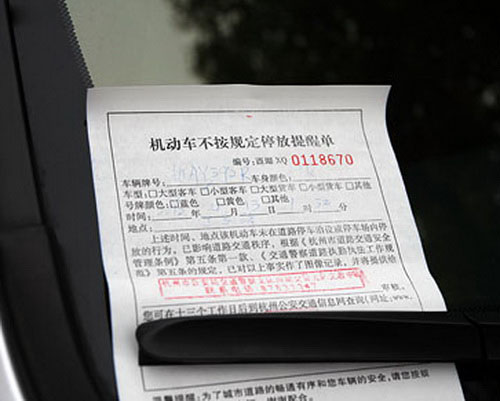 机动车不按规定停放提醒单
编号:西湖 XQ 0118670
车辆牌号: 车身颜色:
车型:□大型客车 □小型客车 □大型货车 □小型货车 □其他
号牌颜色:□蓝色 □黄色 □其他:
时间: 年 月 日 时 分
地点:
上述时间、地点该机动车未在道路停车泊位或停车场内停
放的行为,已影响道路交通秩序,根据《杭州市道路交通安全
管理条例》第五条第一款、《交通警察道路执勤执法工作规
范》第五条的规定,已对以上事实作了图像记录,并将提供给
杭州市公安局交通警察
联系电话:
审核。
您可在十三个工作日后到杭州公安交通信息网查询(网址:www.
温馨提醒:为了城市道路的畅通有序和您车辆的安全,请您按规
谢谢配合。